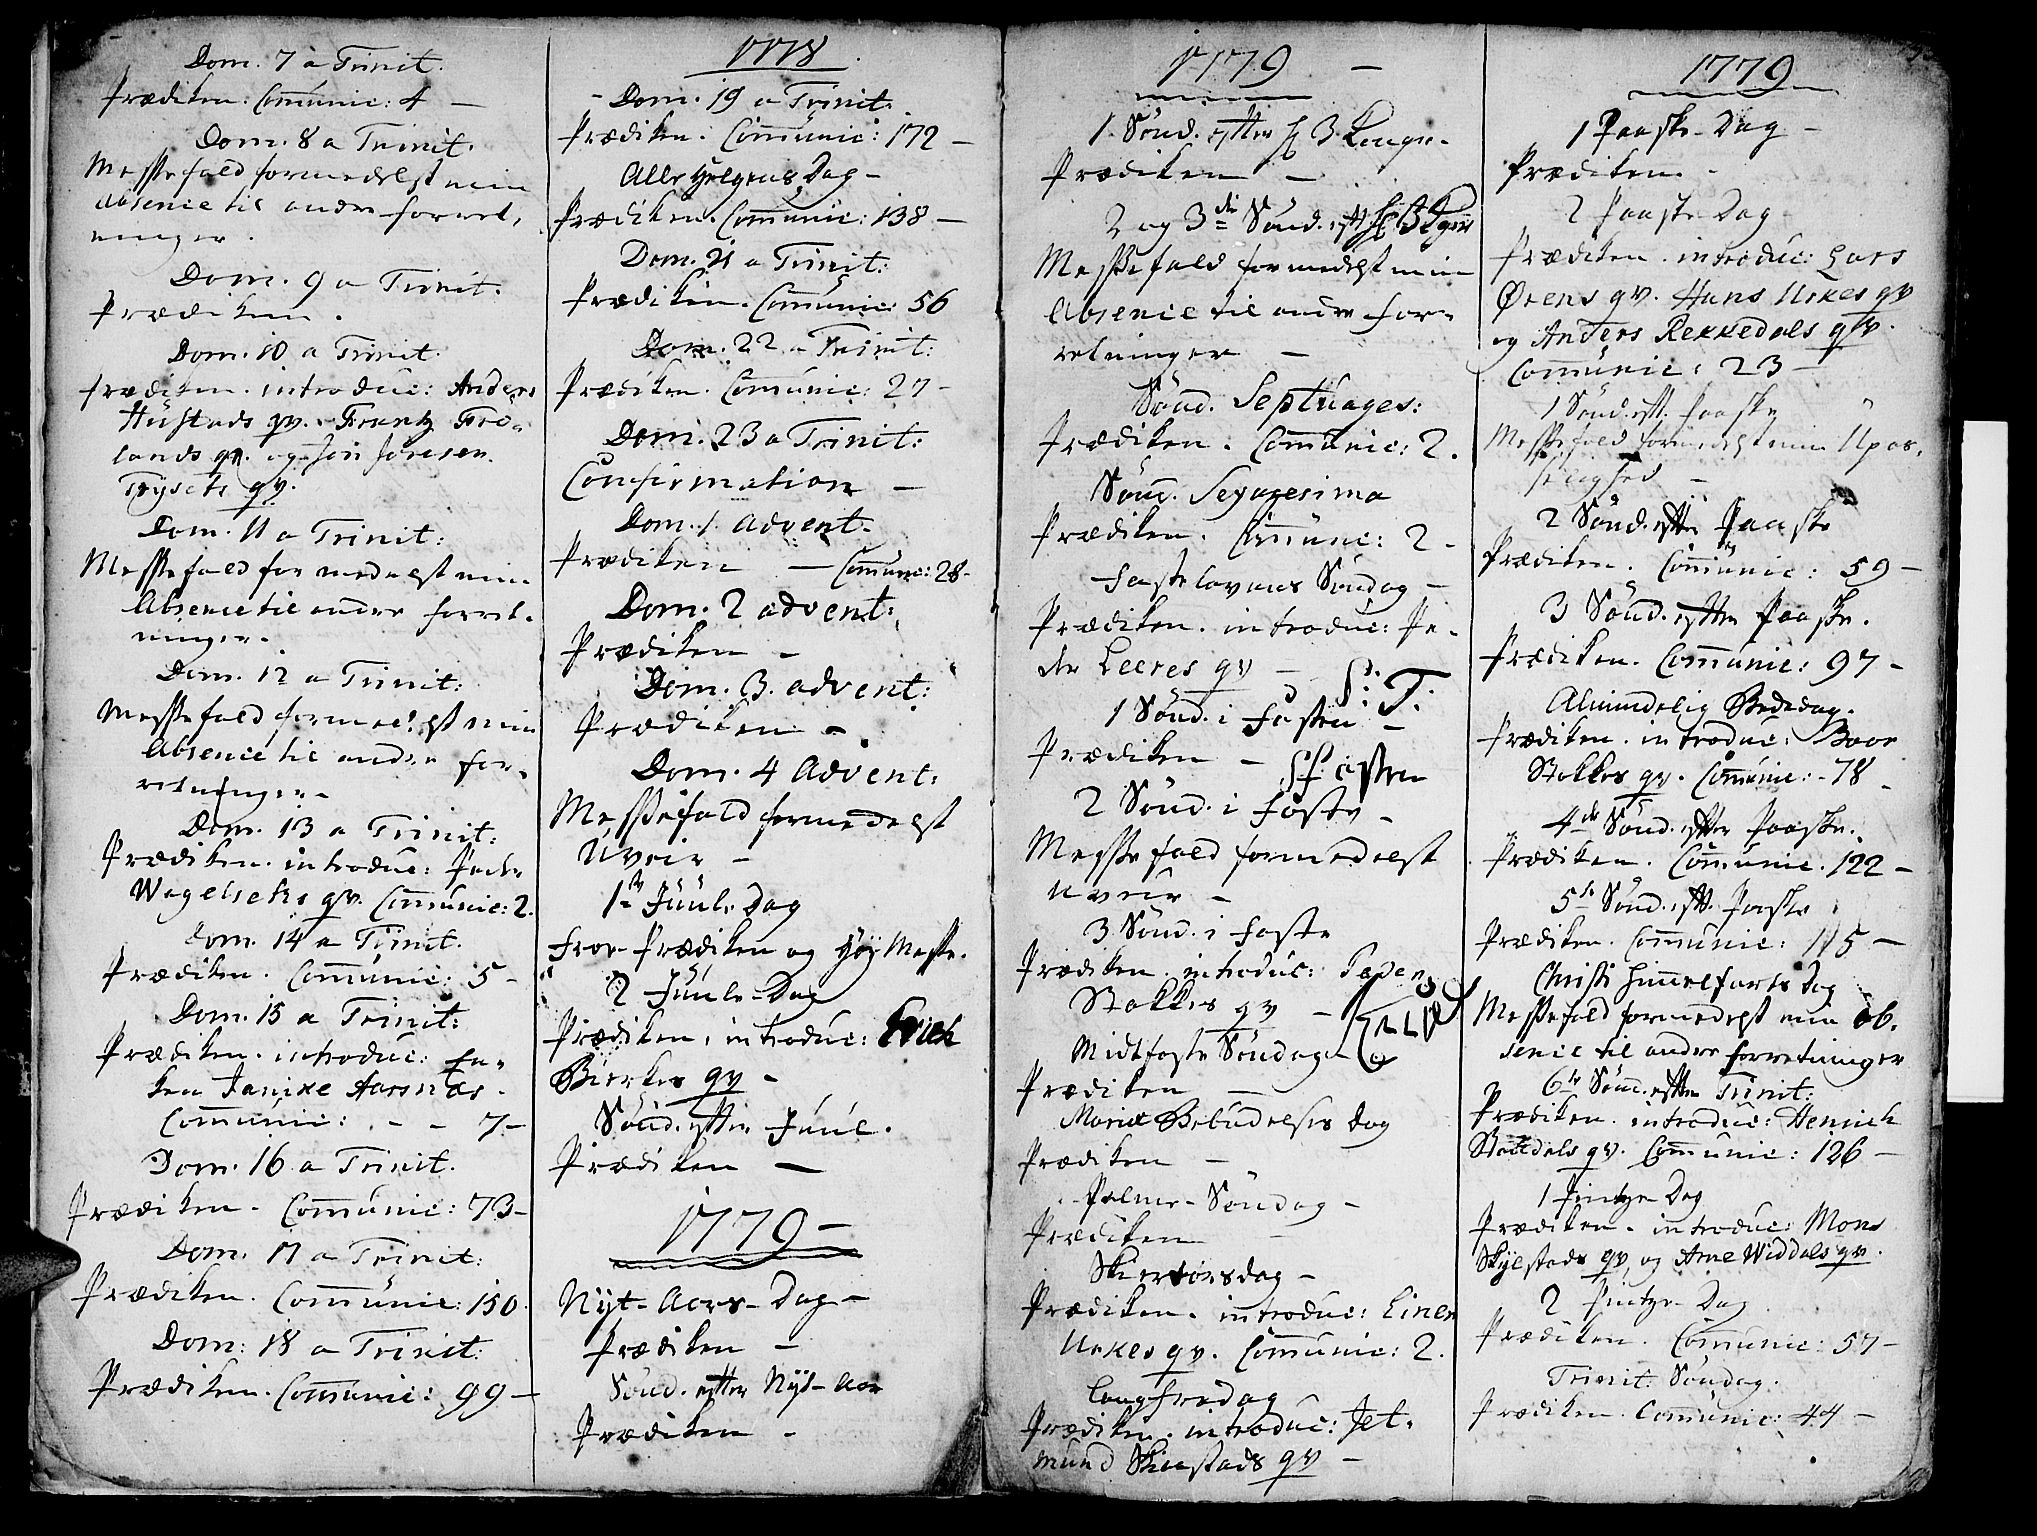 Dom. 7 a Trinit.
Prædiken. Com̄unic: 4 –
Dom. 8 a Trinit.
Messefald formedelst min
Absence til andre forret,
ninger.
Dom. 9 a Trinit:
Prædiken.
Dom. 10 a Trinit.
Prædiken. introduc: Anders
Hustads qv. Frantz Frø-
lands qv. og Jon Joensen
Trysets qv.
Dom. 11 a Trinit:
Messefald formedelst min
Absence til andre forret-
ninger.
Dom. 12 a Trinit:
Messefald formedelst min
Absence til andre for-
retninger –
Dom. 13 a Trinit:
Prædiken. introduc: Peder
Wagelsets qv. Com̄unic: 2.
Dom. 14 a Trinit.
Prædiken. Com̄unic: 5 –
Dom. 15 a Trinit:
Prædiken. introduc: En-
ken Janike Aarsnæs.
Com̄unic: . – – 7 –
Dom. 16 a Trinit.
Prædiken. Com̄unic: 73 –
Dom. 17 a Trinit:
Prædiken. Com̄unic: 150.
Dom: 18 a Trinit:
Prædiken. Com̄unic: 99 –
1778.
Dom. 19 a Trinit:
Prædiken. Com̄unic: 172 –
Alle Helgens Dag –
Prædiken. Com̄unic: 138 –
Dom. 21 a Trinit:
Prædiken. Com̄unic: 56
Dom. 22 a Trinit:
Prædiken. Com̄unic: 27 –
Dom. 23 a Trinit:
Confirmation –
Dom. 1. Advent.
Prædiken – Com̄unic: 28 –
Dom. 2 advent:
Prædiken –
Dom. 3. advent:
Prædiken –
Dom. 4 Advent:
Messefald formedelst
Uveir –
1ste Juule Dag
Froe-Prædiken og Høy Messe.
2 Juule-Dag
Prædiken, introduc: Erich
Bierkes qv –
Sønd. efter Juul.
Prædiken –
1779 –
Nyt-Aars-Dag –
Prædiken –
Sønd. efter Nyt-Aar
Prædiken –
1779 –
1. Sønd. efter H 3 Konger.
Prædiken –
2 og 3die Sønd. eft H 3 Kgrs
Messefald formedelst min
Absence til andre for-
retninger –
Sønd. Septuages:
Prædiken. Com̄unic: 2.
Sønd. Sexagesima
Prædiken. Com̄unic: 2 –
Fastelavens Søndag –
Prædiken. introduc: Pe-
der Leeres qv –
1 Sønd. i Fasten –
Prædiken –
2 Sønd. i Faste –
Messefald formedelst
Uveir –
3 Sønd. i Faste
Prædiken introduc:
Stokkes qv –
Midtfaste Søndag
Prædiken –
Mariæ Bebudelses Dag
Prædiken –
Palme-Søndag –
Prædiken –
Skiertorsdag –
Prædiken. introduc: Einer
Urkes qv. Com̄unic: 2.
Langfredag
Prædiken. introduc: Jet-
mund Skinstads qv –
1779
1 Paaske-Dag –
Prædiken –
2 Paaske Dag –
Prædiken. introduc: Lars
Ørens qv. Hans Urkes qv
og Anders Rekkedals qv.
Com̄unic: 23 –
1 Sønd. eft. Paaske
Messefald formedelst min Upas,
selighed –
2 Sønd. efter Paaske
Prædiken. Com̄unic: 59 –
3 Sønd. efter Paaske.
Prædiken. Com̄unic: 97 –
Almindelig Bededag.
Prædiken. introduc: Baar
Stokkes qv. Com̄unic: 78 –
4de Sønd. efter Paaske.
Prædiken. Com̄unic. 122 –
5te Sønd. eft. Paaske
Prædiken. Com̄unic: 115 –
Christi Himmelfarts Dag
Messefald formedelst min ab-
sence til andre forretninger
6te Sønd. efter Trinit:
Prædiken. introduc: Henrich
Com̄unic: 126 –
1 Pintze Dag
Prædiken. introduc: Mons
Skylstads qv, og Arne Widdals qv.
2 Pintze-Dag
Prædiken. Com̄unic: 57 –
Trinit. Søndag.
Prædiken. Com̄unic: 44 –